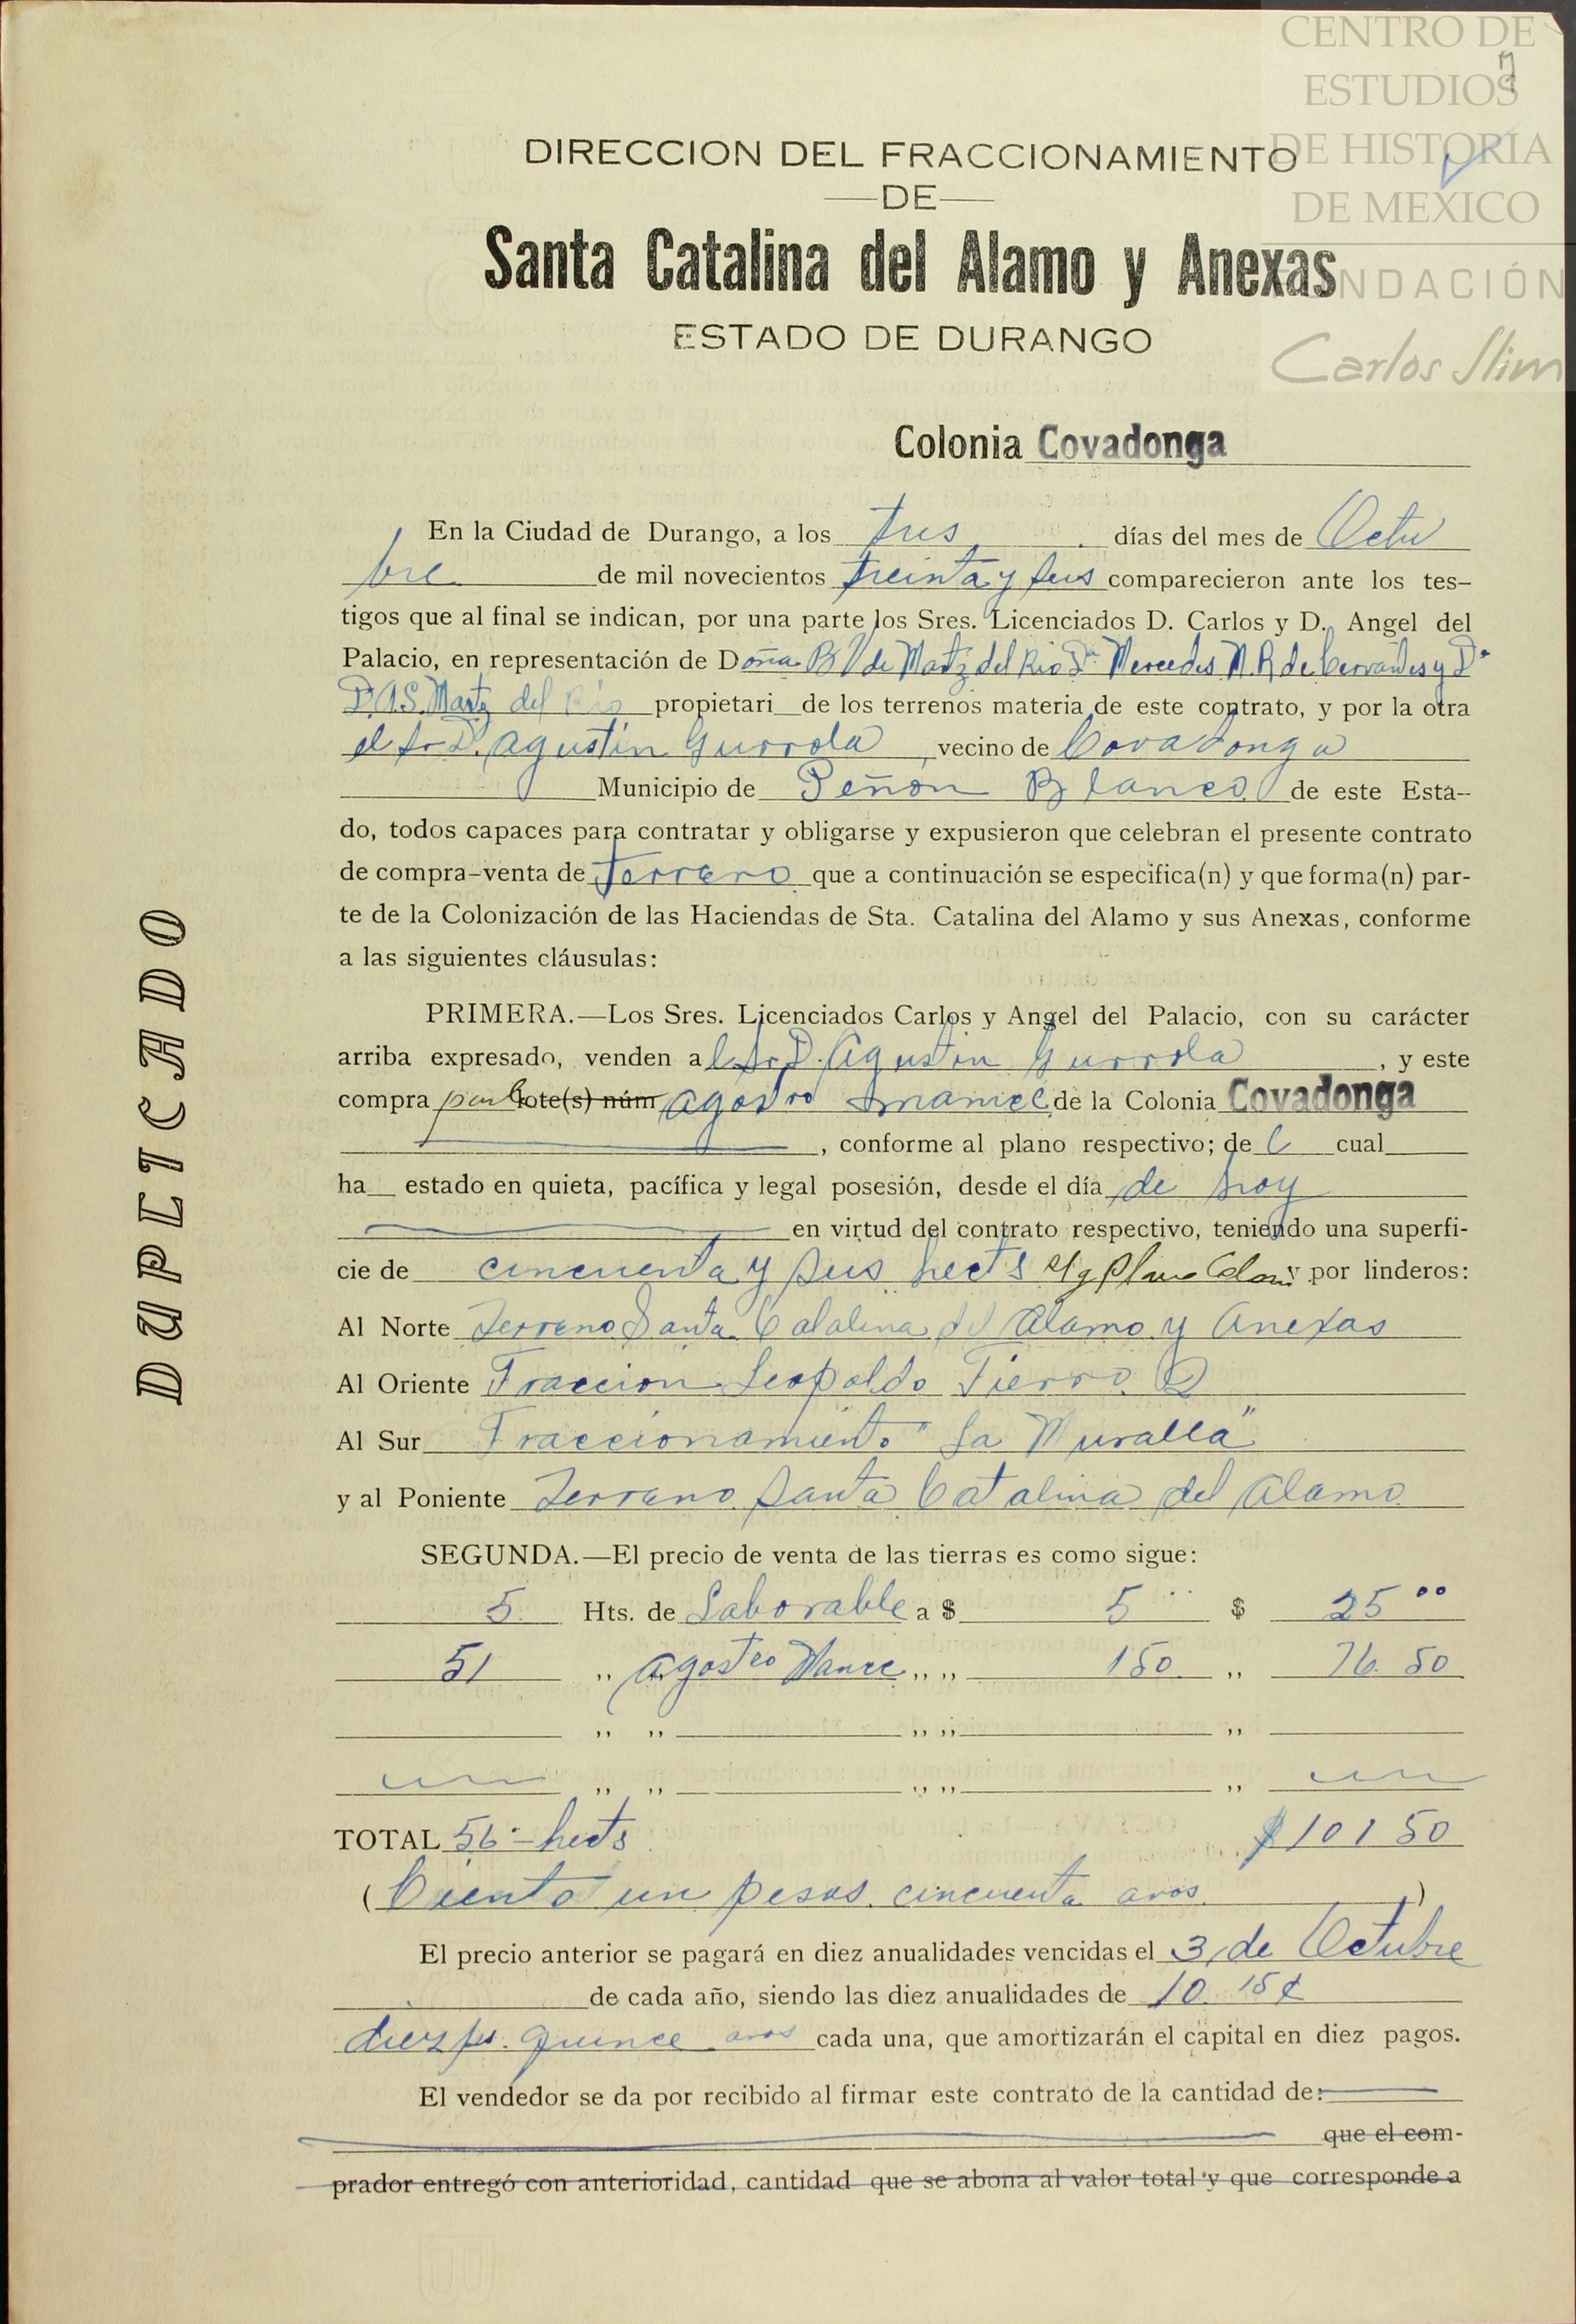 CENTRO DE
ESTUDIOS
DE HISTORIA
DE MEXICO
FUNDACIÓN
Carlos Slim
7
DIRECCION DEL FRACCIONAMIENTO
—DE—
Santa Catalina del Alamo y Anexas
ESTADO DE DURANGO
Colonia Covadonga
DUPLICADO
En la Ciudad de Durango, a los tres días del mes de Octu
bre de mil novecientos treinta y seis comparecieron ante los tes-
tigos que al final se indican, por una parte los Sres. Licenciados D. Carlos y D. Angel del
Palacio, en representación de Doña B V de Martz del Rio Da Mercedes M. R de Cervantes y D.
P.A.S. Martz del Rio propietari de los terrenos materia de este contrato, y por la otra
el Sr D. Agustin Gurrola, vecino de Covadonga
Municipio de Peñon Blanco de este Esta-
do, todos capaces para contratar y obligarse y expusieron que celebran el presente contrato
de compra-venta de Terreno que a continuación se especifica(n) y que forma(n) par-
te de la Colonización de las Haciendas de Sta. Catalina del Alamo y sus Anexas, conforme
a las siguientes cláusulas:
PRIMERA.—Los Sres. Licenciados Carlos y Angel del Palacio, con su carácter
arriba expresado, venden al Sr D. Agustin Gurrola, y este
compra lote(s) núm de la Colonia Covadonga
, conforme al plano respectivo; de l cual
ha estado en quieta, pacífica y legal posesión, desde el día de hoy
en virtud del contrato respectivo, teniendo una superfi-
cie de cincuenta y seis hects y por linderos:
Al Norte Terreno Santa Catalina del Alamo y Anexas
Al Oriente Fraccion Leopoldo Fierro
Al Sur Fraccionamiento "La Muralla"
y al Poniente Terreno Santa Catalina del Alamo
SEGUNDA.—El precio de venta de las tierras es como sigue:
5 Hts. de Laborable a $ 5 $ 25 00
51 ,, agosteo ,, ,, 150 ,, 76.50
,, ,, ,, ,, ,,
,, ,, ,, ,, ,,
TOTAL 56 - hects $ 101 50
(Ciento un pesos cincuenta avos)
El precio anterior se pagará en diez anualidades vencidas el 3 de Octubre
de cada año, siendo las diez anualidades de 10 15 ¢
diez ps. quince avos cada una, que amortizarán el capital en diez pagos.
El vendedor se da por recibido al firmar este contrato de la cantidad de:
que el com-
prador entregó con anterioridad, cantidad que se abona al valor total y que corresponde a